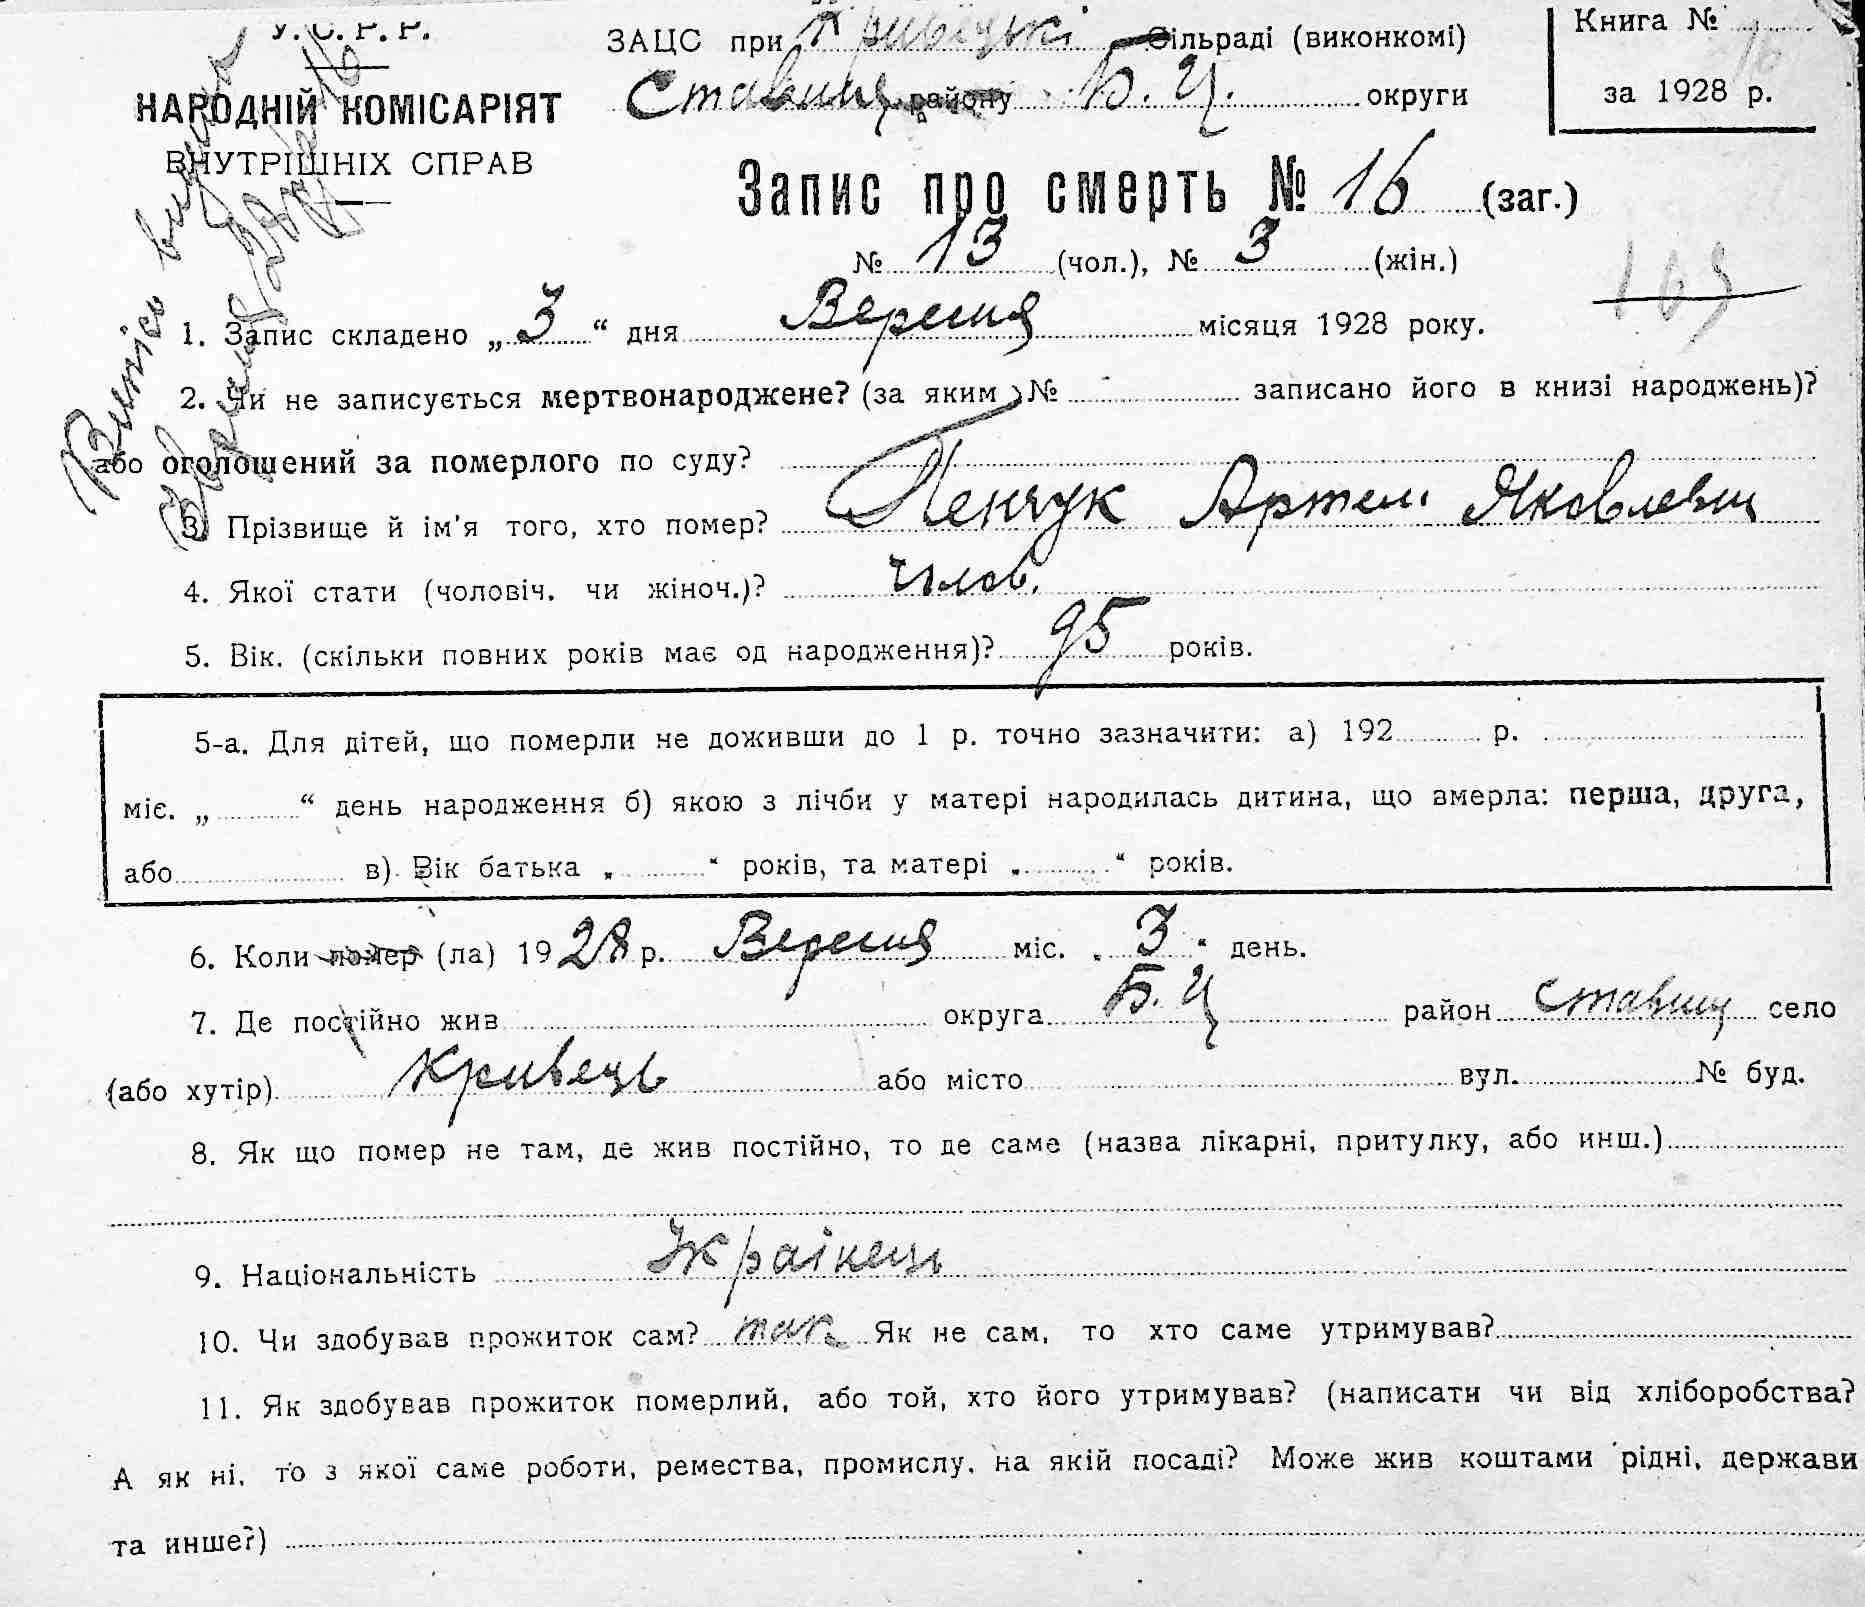 У. С. Р. Р.
НАРОДНІЙ КОМІСАРІЯТ
ВНУТРІШНІХ СПРАВ
ЗАЦС при Кривецькі Сільраді (виконкомі)
Ставищ району Б. Ц. округи
Книга №
за 1928 р.
Запис про смерть № 16 (заг.)
№ 13 (чол.), № 3 (жін.)
1. Запис складено „ 3 “ дня Вересня місяця 1928 року.
2. Чи не записується мертвонароджене? (за яким № записано його в книзі народжень)?
або оголошений за померлого по суду?
3. Прізвище й ім'я того, хто помер? Пенчук Артем Яковлевич
4. Якої стати (чоловіч. чи жіноч.)? чолов.
5. Вік. (скільки повних років має од народження)? 95 років.
5-а. Для дітей, що померли не доживши до 1 р. точно зазначити: а) 192 р.
міс. „ “ день народження б) якою з лічби у матері народилась дитина, що вмерла: перша, друга,
або в) Вік батька „ “ років, та матері „ “ років.
6. Коли помер (ла) 1928 р. Вересня міс. „ 3 “ день.
7. Де постійно жив округа Б. Ц район Ставищ село
(або хутір) Кривець або місто вул. № буд.
8. Як що помер не там, де жив постійно, то де саме (назва лікарні, притулку, або инш.)
9. Національність Українець
10. Чи здобував прожиток сам? так Як не сам, то хто саме утримував?
11. Як здобував прожиток померлий, або той, хто його утримував? (написати чи від хліборобства?
А як ні, то з якої саме роботи, ремества, промислу, на якій посаді? Може жив коштами рідні, держави
та инше?)